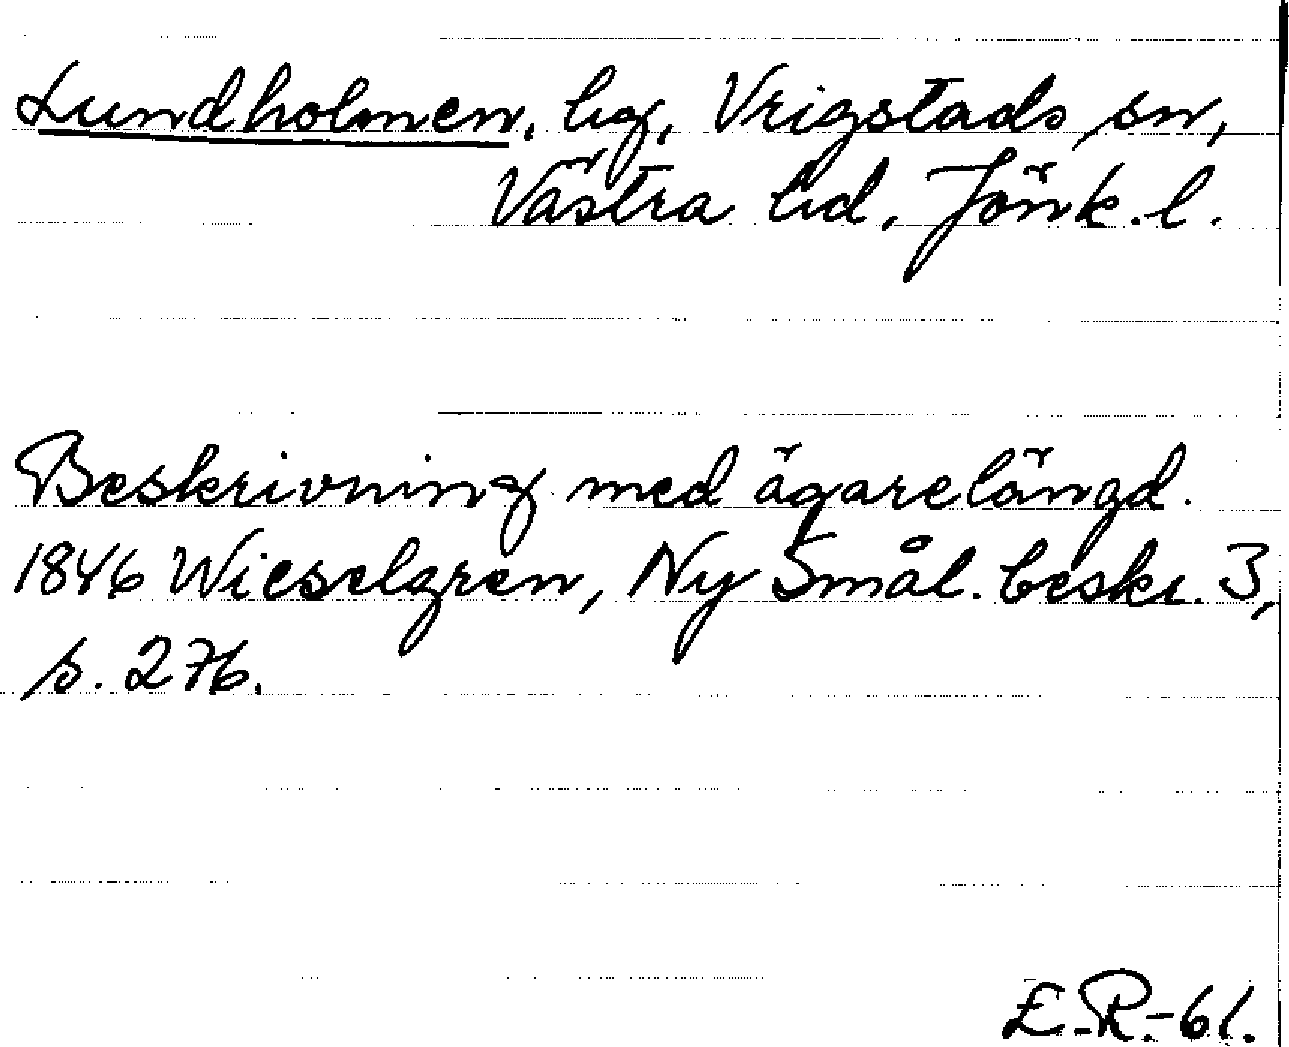 Lundholmen, hg, Vrigstads sn,
Västra hd, Jönk. l.
Beskrivning med ägarelängd.
1846 Wieselgren, Ny Smål. beskr. 3,
s. 276.
E.R.-61.